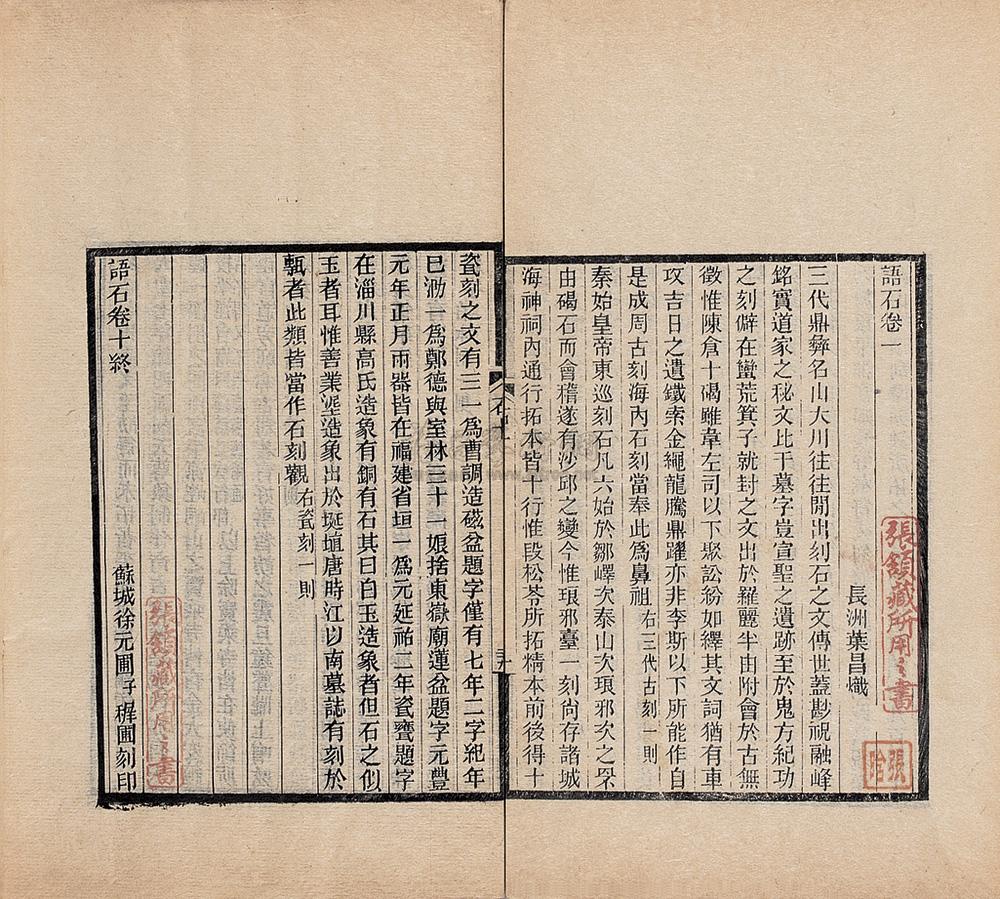 語石卷一
長洲葉昌熾
三代鼎彝名山大川往往閒出刻石之文傳世蓋尠祝融峰
銘實道家之秘文比干墓字豈宣聖之遺跡至於鬼方紀功
之刻僻在蠻荒箕子就封之文出於羅麗半由附會於古無
徵惟陳倉十碣雖韋左司以下聚訟紛如繹其文詞猶有車
攻吉日之遺鐵索金繩龍騰鼎躍亦非李斯以下所能作自
是成周古刻海內石刻當奉此為鼻祖右三代古刻一則
秦始皇帝東巡刻石凡六始於鄒嶧次泰山次琅邪次之罘
由碣石而會稽遂有沙邱之變今惟琅邪臺一刻尙存諸城
海神祠內通行拓本皆十行惟段松苓所拓精本前後得十
瓷刻之文有三一為曹調造磁盆題字僅有七年二字紀年
已泐一為鄭德與室林三十一娘捨東嶽廟蓮盆題字元豐
元年正月兩器皆在福建省垣一為元延祐二年瓷罋題字
在淄川縣高氏造象有銅有石其曰白玉造象者但石之似
玉者耳惟善業埿造象出於埏埴唐時江以南墓誌有刻於
甎者此類皆當作石刻觀右瓷刻一則
語石卷十終
蘇城徐元圃子穉圃刻印
石十
張頟藏所用之書
張頟藏所用之書